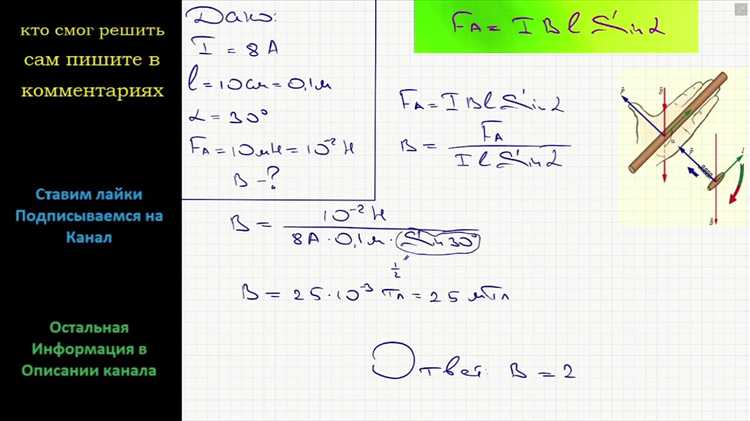 кто смог решить
сам пишите в
комментариях
Ставим лайки
Подписываемся на
Канал
Остальная
Информация в
Описании канала
Дано:
I = 8A
l = 10см = 0,1м
α = 30°
FA = 10мН = 10⁻² Н
B - ?
FA = I B l Sin α
FA = I B l Sin α
B = FA / I l Sin α
B = 10⁻² Н / 8A · 0,1м · Sin 30°
1/2
B = 25 · 10⁻³ Тл = 25 мТл
Ответ: B = 2